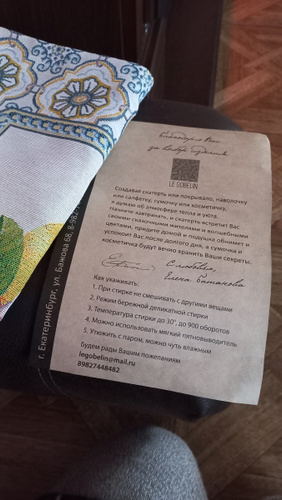 Благодарю Вас
за выбор
LE GOBELIN
Создавая скатерть или покрывало, наволочку
или салфетку, сумочку или косметичку,
я думаю об атмосфере тепла и уюта.
Пожалуйста, завтракая, и скатерть встретит Вас
своими сказочными мотивами и волшебными
цветами, придете домой и подушка обнимет и
успокоит Вас после долгого дня, а сумочка и
косметичка будут вечно хранить Ваши секреты.
С любовью,
Елена
Как ухаживать:
1. При стирке не смешивать с другими вещами
2. Режим бережной деликатной стирки
3. Температура стирки до 30°, до 900 оборотов
4. Можно использовать мягкий пятновыводитель
5. Утюжить с паром, можно чуть влажным
Будем рады Вашим пожеланиям
legobelin@mail.ru
89827448482
г. Екатеринбург, ул. Бажова 68, 8-982-7